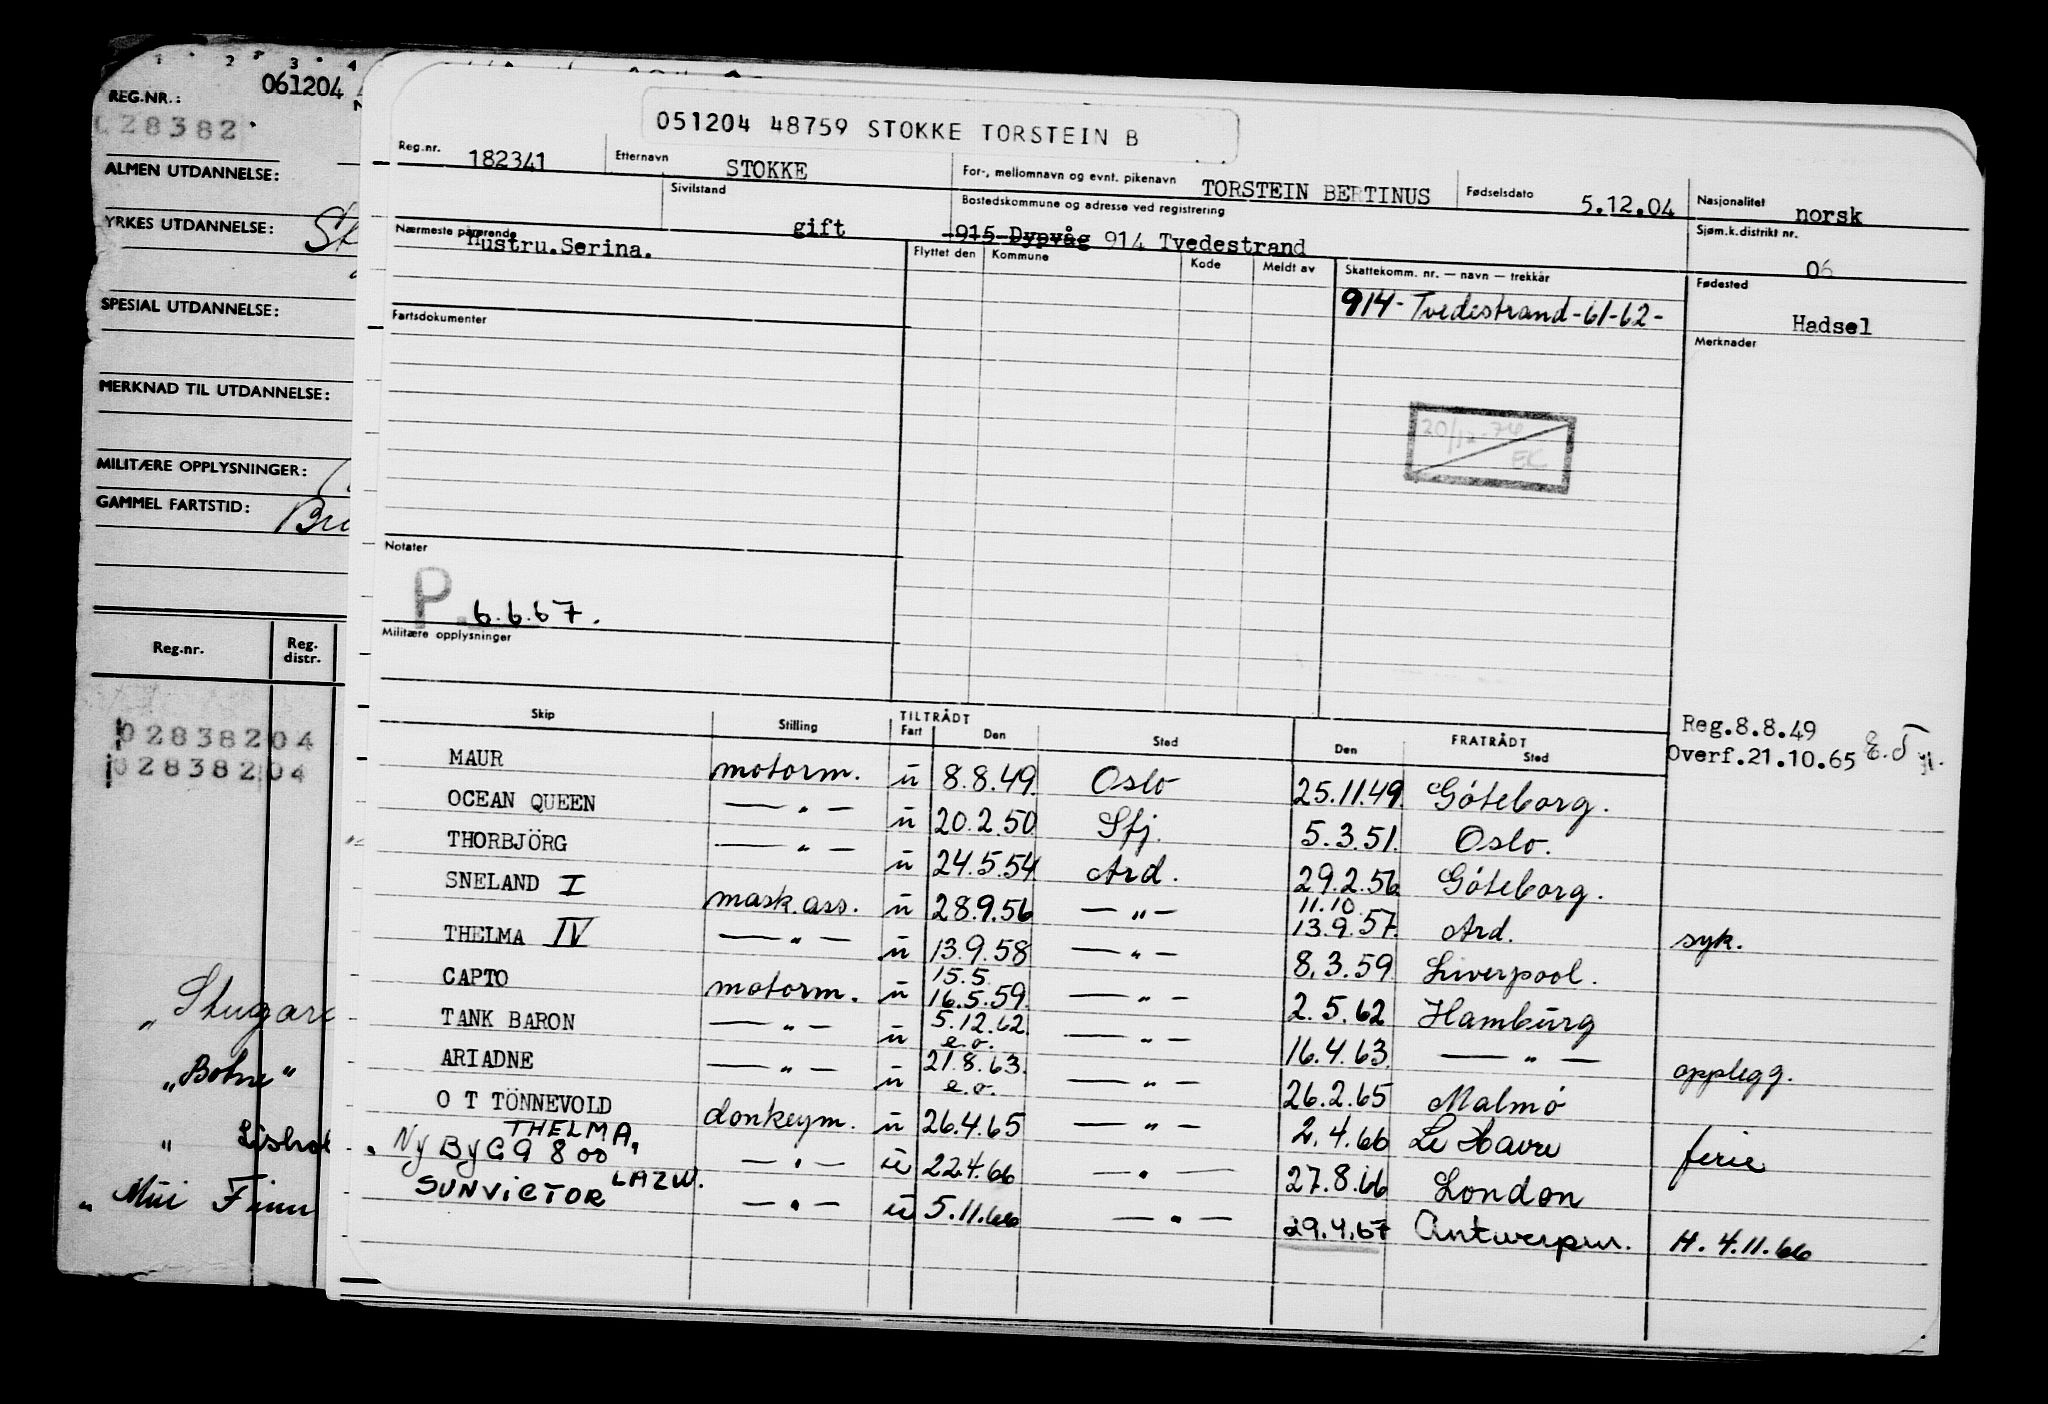 1 2 3 4
061204
REG.NR.:
028382
ALMEN UTDANNELSE:
YRKES UTDANNELSE:
SPESIAL UTDANNELSE:
MERKNAD TIL UTDANNELSE:
MILITÆRE OPPLYSNINGER:
GAMMEL FARTSTID:
Reg.nr. Reg. distr.
02838204
02838204
„ Stugard
„Bohne"
„ Lisholt
„ Mui Finn
051204 48759 STOKKE TORSTEIN B
Reg.nr. 182341 Etternavn STOKKE For-, mellomnavn og evnt. pikenavn TORSTEIN BERTINUS Fødselsdato 5.12.04 Nasjonalitet norsk
Sivilstand gift Bostedskommune og adresse ved registrering 915 Dypvåg 914 Tvedestrand Sjøm.k.distrikt nr. 06
Nærmeste pårørende Hustru.Serina.
Flyttet den Kommune Kode Meldt av Skattekomm. nr. — navn — trekkår Fødested Hadsel
914- Tvedestrand-61-62-
Fartsdokumenter
Merknader
20/12-74
EK
Notater
P. 6.6.67.
Militære opplysninger
Reg.8.8.49
Overf.21.10.65 E.T
Skip Stilling TILTRÅDT Fart Den Sted FRATRÅDT Den Sted
MAUR motorm. u 8.8.49. Oslo 25.11.49. Göteborg.
OCEAN QUEEN — " — u 20.2.50 Sfj. 5.3.51. Oslo.
THORBJÖRG — " — u 24.5.54 Ard. 29.2.56 Göteborg.
SNELAND I mask.ass. u 28.9.56 — " — 11.10 13.9.57. Ard. syk.
THELMA IV — " — u 13.9.58 — " — 8.3.59 Liverpool.
CAPTO motorm. u 15.5 16.5.59. — " — 2.5.62 Hamburg
TANK BARON — " — u 5.12.62. e.o. — " — 16.4.63. — " — opplegg.
ARIADNE — " — u 21.8.63. e.o. — " — 26.2.65 Malmö
O T TÖNNEVOLD donkeym. u 26.4.65 — " — 2.4.66 Le Havre ferie
THELMA,
NyByGG 800 — " — u 22.4.66 — " — 27.8.66 London
LAZW.
SUNVICTOR — " — u 5.11.66 — " — 29.4.67 Antwerpen. H. 4.11.66